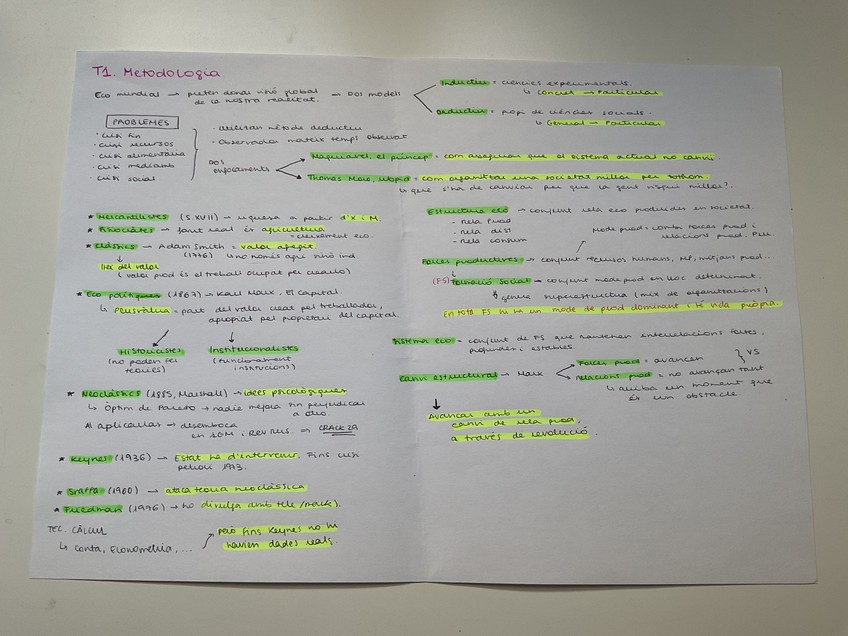 T1. Metodologia
Eco mundial → pretén donar visió global → DOS models
de la nostra realitat.
Inductiu = ciències experimentals.
↳ Concret → Particular
Deductiu = propi de ciències socials.
↳ General → Particular
PROBLEMES
· Crisi fin
· Crisi recursos
· Crisi alimentaria
· Crisi mediamb
· Crisi social
· Utilitzan mètode deductiu
· Observador mateix temps observat
DOS
enfocaments
Maquiavel, el príncep = com assegurar que el sistema actual no canvi.
Thomas More, utopia = com organitzar una societat millor per tothom
↳ que s'ha de canviar per que la gent visqui millor?.
* Mercantilistes (S. XVII) → riquesa a partir d'x i M.
* Fisiòcrates → font real és agricultura
→ creixement eco.
* Clàssics → Adam Smith = valor afegit.
(1776) ↳ no només agri sinó ind.
↓
llei del valor
(valor prod és el treball ocupat per crearlo)
* Eco polítiques (1867) → Karl Marx, El capital.
↳ Plusvàlua = part del valor creat pel treballador,
apropiat pel propietari del capital.
Historicistes
(no poden fer
teories)
Institucionalistes
(funcionament
institucions)
* Neoclàssics (1885, Marshall) → idees psicològiques
↳ Òptim de Pareto → nadie mejora sin perjudicar
a otro.
Al aplicarlas → desemboca
en 1GM i Rev Rus. ⇒ CRACK 29
* Keynes (1936) → Estat ha d'intervenir. Fins crisi
petroli 1973.
* Sraffa (1960) → ataca teoria neoclàssica
* Friedman (1996) → ho divulga amb tele /mark).
TEC. CÀLCUL
↳ Conta, Econometria, ...
però fins Keynes no hi
havien dades reals.
Estructura eco → conjunt rela eco produïdes en societat.
- Rela Prod
- Rela dist
- Rela consum
Mode prod = comb. forces prod i
relacions prod.
Forces productives → conjunt recursos humans, MP, mitjans prod...
(FS) Formació Social → conjunt mode prod en lloc determinat.
↳ genera superestructura (mix de organitzacions)
En tota FS hi ha un mode de prod dominant i té vida pròpia.
Sistema eco → conjunt de FS que mantenen interrelacions fortes,
profundes i estables.
Canvi estructural → Marx
Forces prod = avancen
relacions prod = no avançan tant
} VS
↳ arriba un moment que
és un obstacle.
↓
Avançar amb un
canvi de rela prod,
a través de revolució.